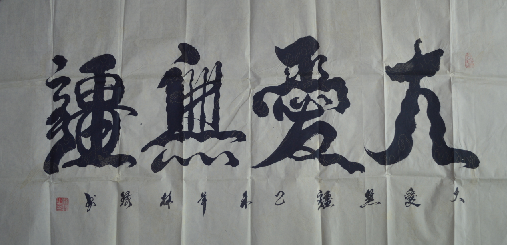 大愛無疆
大愛無疆乙未年林書